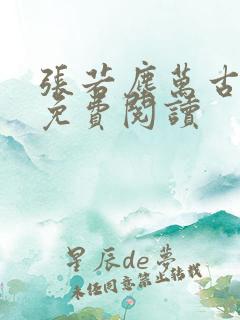 張若塵萬古
免費閱讀
星辰de夢
未經同意禁止轉載